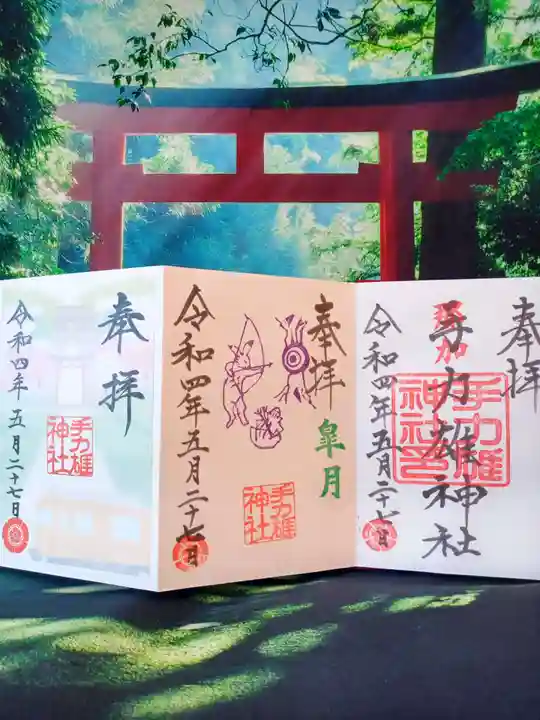 奉拝
手力雄
神社
令和四年五月二十七日
奉拝
皐月
手力雄
神社
令和四年五月二十七日
奉拝
那加
手力雄神社
手力雄
神社印
令和四年五月二十七日